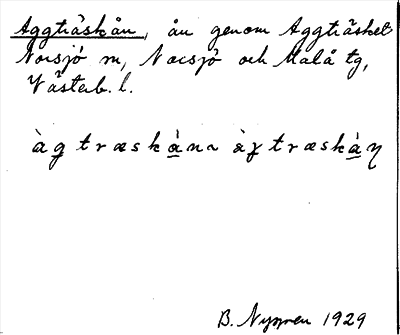 Aggträskån, ån genom Aggträsket
Norsjö m, Norsjö och Malå tg,
Västerb. l.
àg træskàna àg træskàn
B. 1929